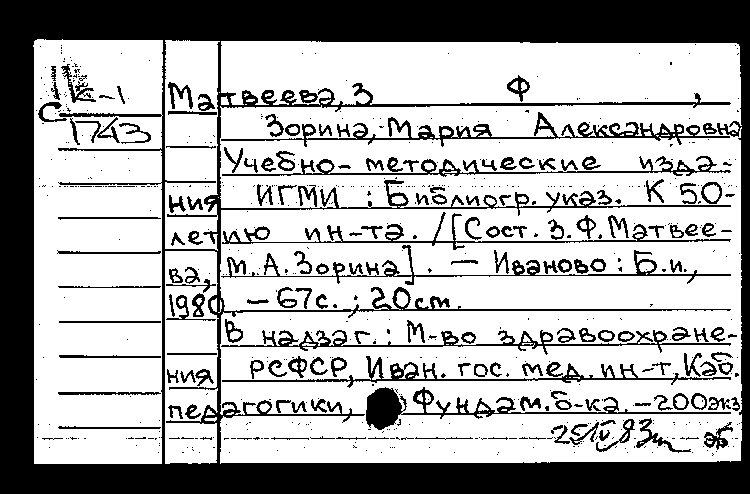 К-1
С
1743
Матвеева, З Ф ,
Зорина, Мария Александровна
Учебно-методические изда-
ния ИГМИ : Библиогр. указ. К 50-
летию ин-та. /[Сост. З.Ф.Матвее-
ва, М.А.Зорина]. — Иваново : Б.и.,
1980. — 67с. ; 20см.
В надзаг.: М-во здравоохране-
ния РСФСР, Иван. гос. мед. ин-т, Каб.
педагогики, Фундам. б-ка. — 200экз